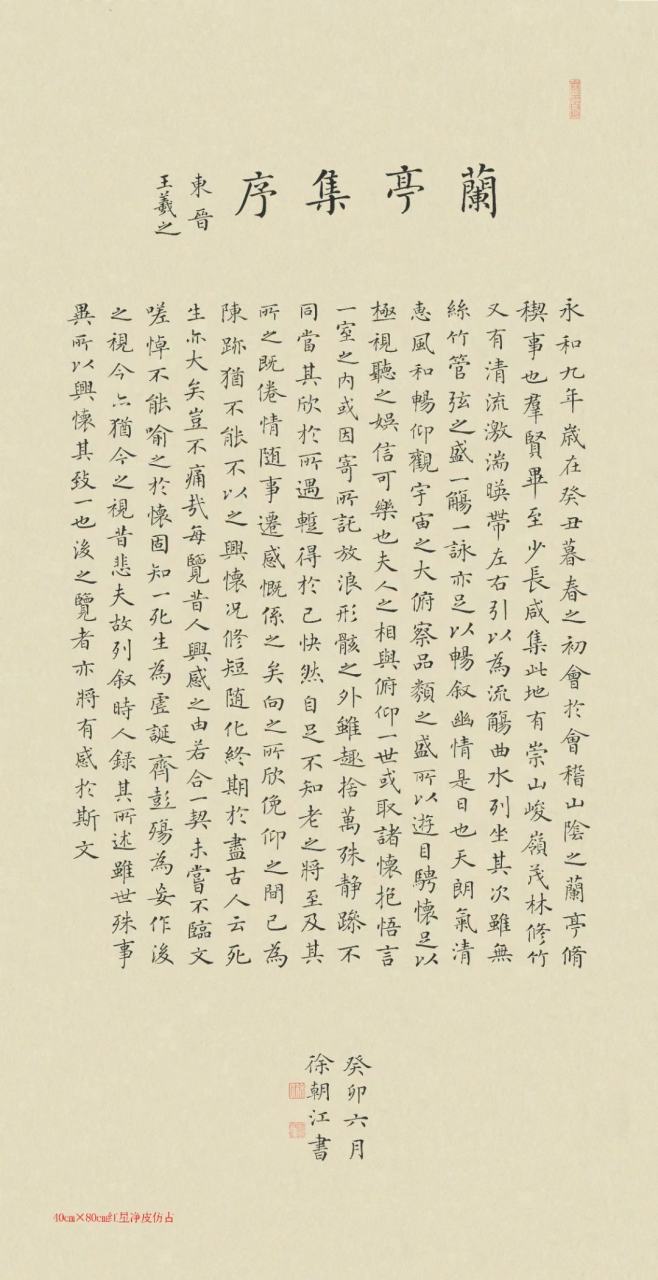 蘭亭集序
東晉
王羲之
永和九年歲在癸丑暮春之初會於會稽山陰之蘭亭脩
稧事也羣賢畢至少長咸集此地有崇山峻嶺茂林修竹
又有清流激湍暎帶左右引以為流觴曲水列坐其次雖無
絲竹管弦之盛一觴一詠亦足以暢叙幽情是日也天朗氣清
恵風和暢仰觀宇宙之大俯察品類之盛所以遊目騁懷足以
極視聽之娱信可樂也夫人之相與俯仰一世或取諸懷抱悟言
一室之内或因寄所託放浪形骸之外雖趣捨萬殊静躁不
同當其欣於所遇蹔得於己快然自足不知老之將至及其
所之既倦情随事遷感慨係之矣向之所欣俛仰之間已為
陳跡猶不能不以之興懷况修短随化終期於盡古人云死
生亦大矣豈不痛哉每覽昔人興感之由若合一契未嘗不臨文
嗟悼不能喻之於懷固知一死生為虚誕齊彭殤為妄作後
之視今亦猶今之視昔悲夫故列叙時人録其所述雖世殊事
異所以興懷其致一也後之覽者亦將有感於斯文
癸卯六月
徐朝江書
40cm×80cm红星净皮仿古